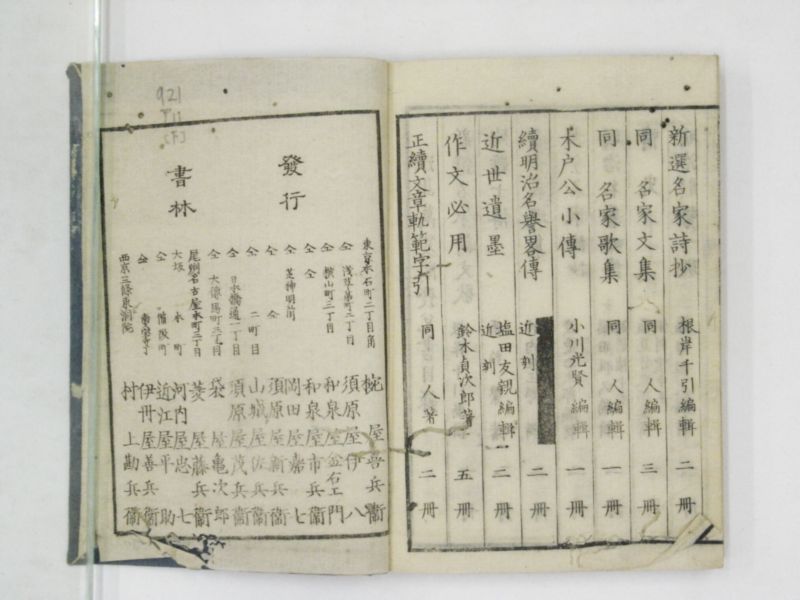 新選名家詩抄 根岸千引編輯 二冊
同 名家文集 同 人編輯 三冊
同 名家歌集 同 人編輯 一冊
木戸公小傳 小川光賢編輯 一冊
續明治名譽畧傳 近刻 二冊
近世遺墨 塩田友親編輯 近刻 二冊
作文必用 鈴木貞次郎著 五冊
正續文章軌範字引 同 人著 二冊
發行
書林
東京本石町二丁目角 椀屋喜兵衞
仝 浅草茅町二丁目 須原屋伊八
仝 横山町三丁目 和泉屋金右エ門
仝 仝 和泉屋市兵衞
仝 芝神明前 岡田屋嘉七
仝 仝 須原屋新兵衞
仝 二町目 山城屋佐兵衞
仝 日本橋通一丁目 須原屋茂兵衞
仝 大傳馬町三丁目 袋屋亀次郎
尾州名古屋本町二丁目 菱屋藤兵衞
大坂 本町 河内屋忠七
仝 備後町 近江屋平助
仝 伊丹屋善兵衞
西京三條東洞院 村上勘兵衞
921